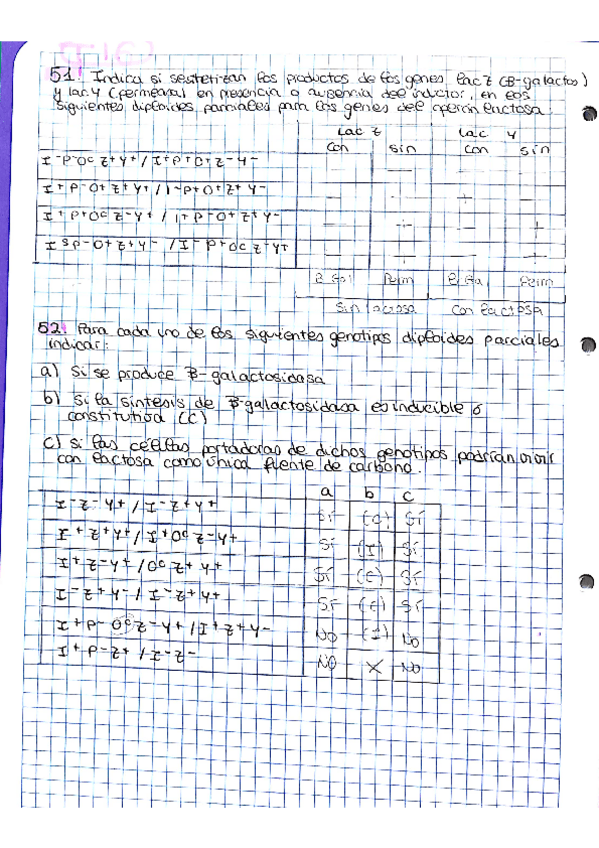 51. Indica si se sintetizan los productos de los genes lac Z (B-galactos)
y lac Y (permeasa) en presencia o ausencia del inductor, en los
siguientes diploides parciales para los genes del operón lactosa:
lac Z lac Y
con sin con sin
I-P-Oc Z+Y+ / I+P+O+Z-Y- —
I+P-O+Z+Y+ / I-P+O+Z+Y- — + —
I+P+OcZ-Y+ / I+P-O+Z+Y- — — + +
I sP-O+Z+Y- / I-P+OcZ-Y+ — — +
B Gal Perm B Gal Perm
Sin lactosa Con lactosa
52. Para cada uno de los siguientes genotipos diploides parciales
indicar:
a) Si se produce B-galactosidasa
b) Si la síntesis de B-galactosidasa es inducible ó
constitutiva (C)
c) Si las células portadoras de dichos genotipos podrían vivir
con lactosa como única fuente de carbono.
a b c
I-Z-Y+ / I-Z+Y+ Sí (C) Sí
I+Z+Y+ / I+OcZ-Y+ Sí (I) Sí
I+Z-Y+ / OcZ+Y+ Sí (C) Sí
I-Z+Y- / I-Z+Y+ Sí (C) Sí
I+P-OcZ-Y+ / I+Z+Y- NO (I) NO
I+P-Z+ / I-Z- NO X NO